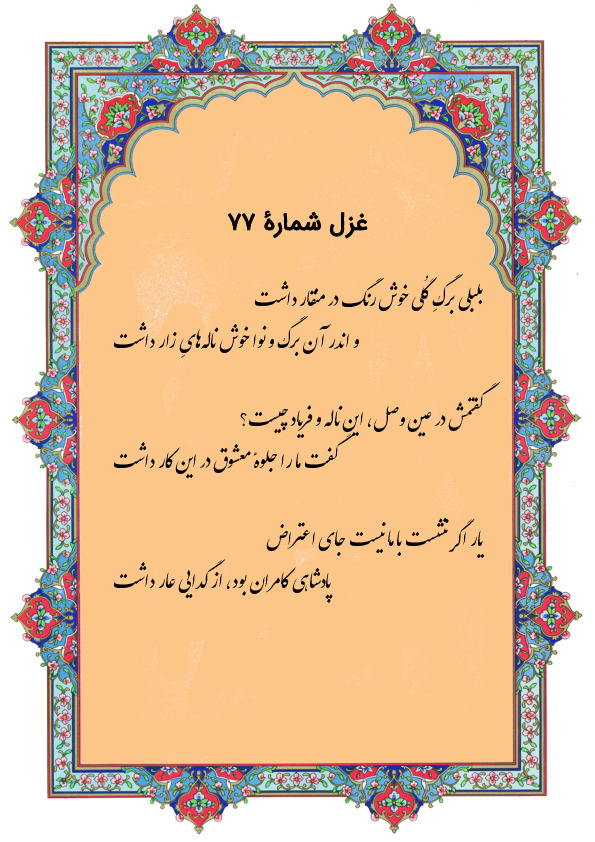 غزل شمارهٔ ۷۷
بلبلی برگِ گُلی خوش رنگ در منقار داشت
و اندر آن برگ و نوا خوش ناله‌هایِ زار داشت
گفتمش در عین وصل، این ناله و فریاد چیست؟
گفت ما را جلوهٔ معشوق در این کار داشت
یار اگر ننشست با ما نیست جای اعتراض
پادشاهی کامران بود، از گدایی عار داشت